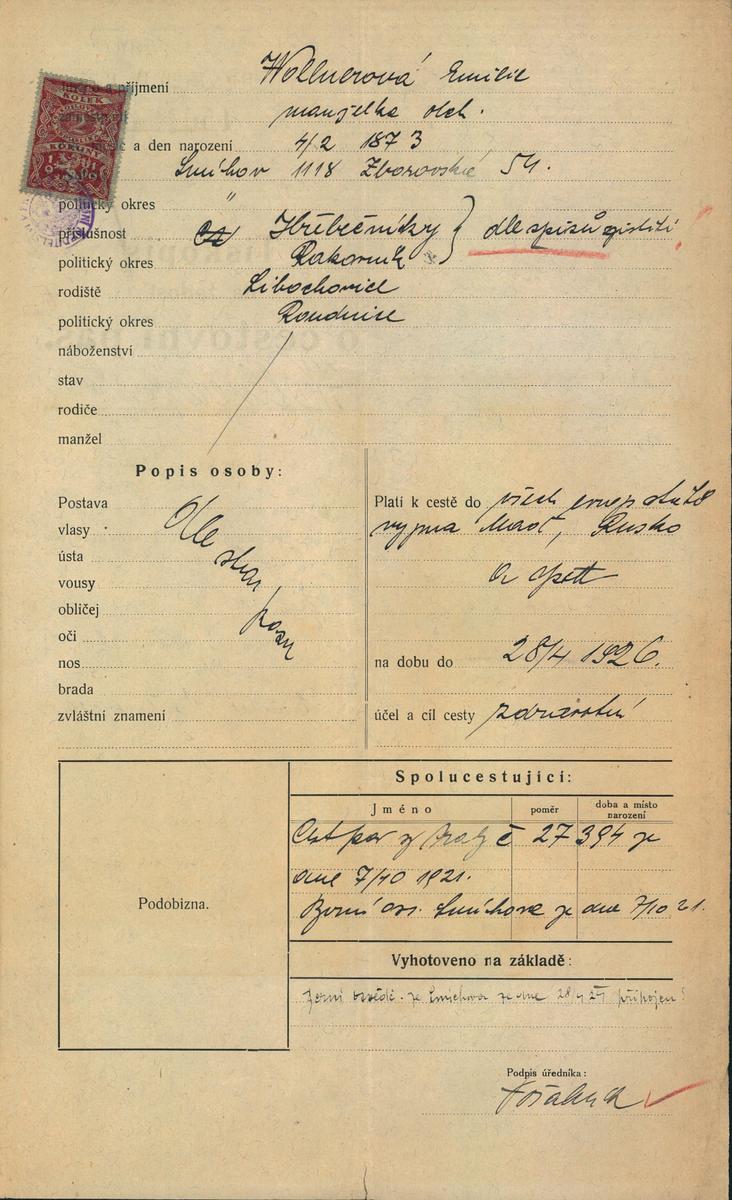 a příjmení Wollnerová Emilie
manželka obch.
a den narození 4/2 1873
Smíchov 1118 Zborovská 54.
KOLEK
KORUNY
politický okres "
příslušnost Hřebečníky } dle spisů zjistiti!
politický okres Rakovník
rodiště Libochovice
politický okres Roudnice
náboženství
stav
rodiče
manžel
Popis osoby:
Postava
vlasy
ústa
vousy
obličej
oči
nos
brada
zvláštní znamení
Dle star. pasu
Platí k cestě do všech evrop. států
vyjma Maď., Rusko
a zpět
na dobu do 28/4 1926.
účel a cíl cesty zdravotní
Spolucestující:
Jméno poměr doba a místo narození
Cest. pas z Prahy č 27394 ze
dne 7/10 1921.
Smíchova ze dne 7/10 21.
Podobizna.
Vyhotoveno na základě:
ze Smíchova ze dne připojeno
Podpis úředníka: